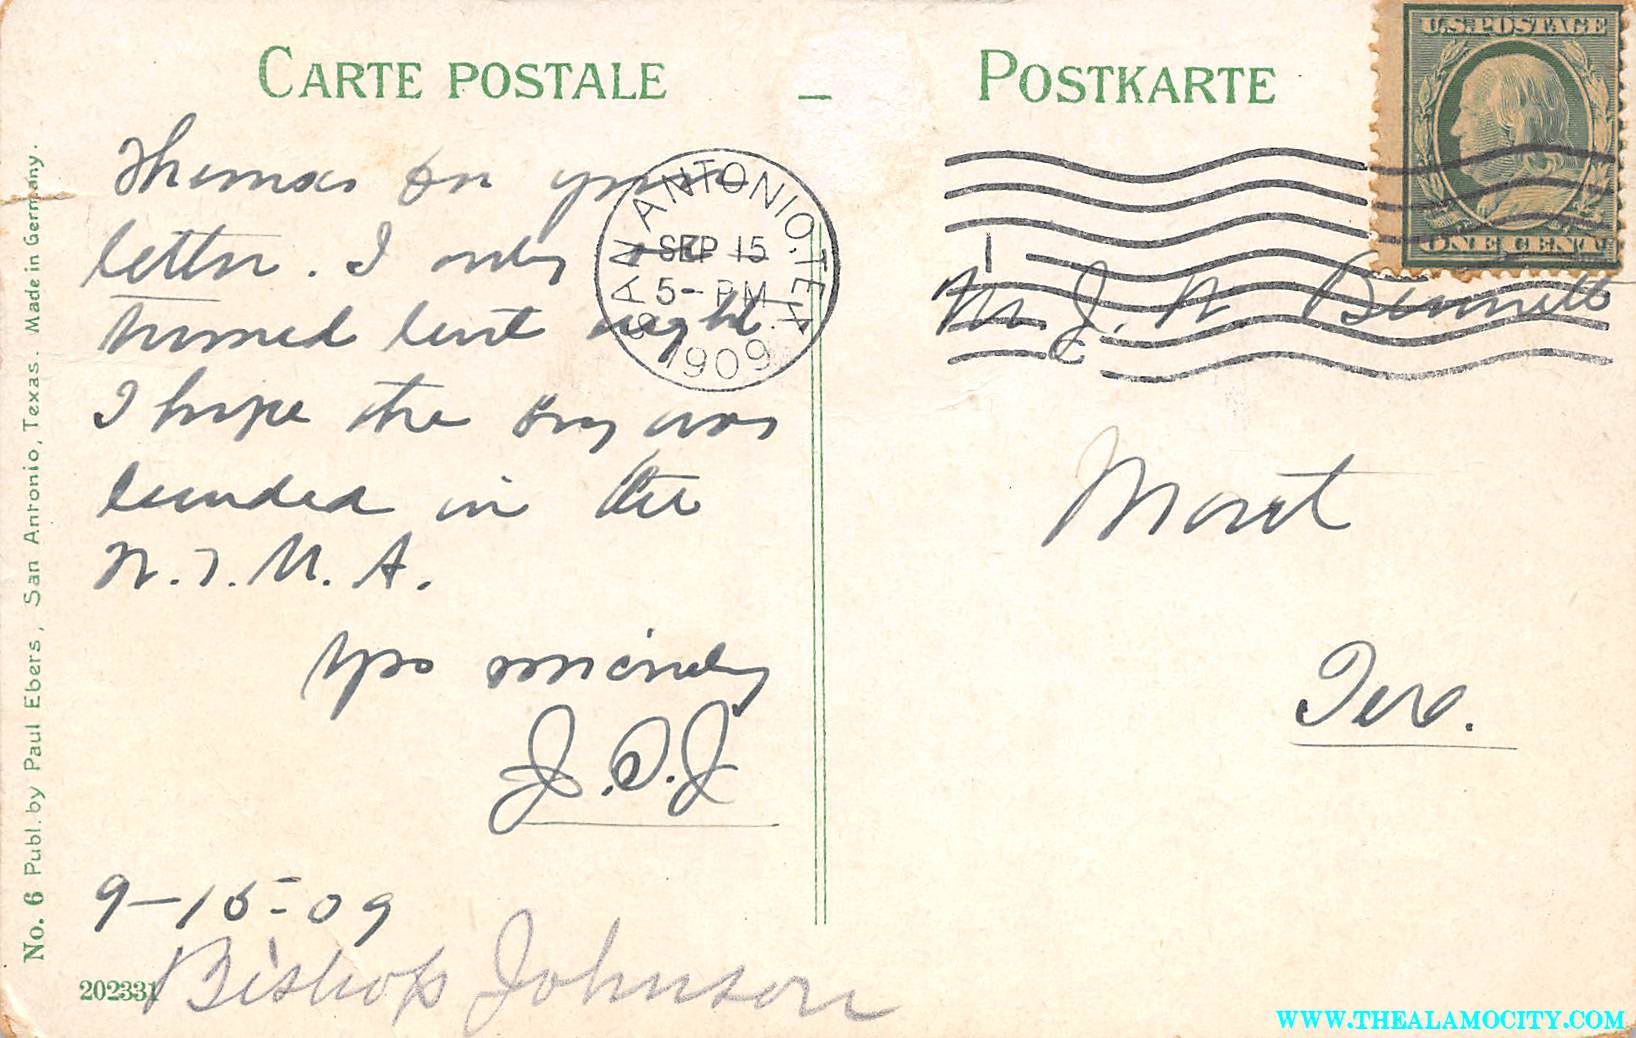 CARTE POSTALE – POSTKARTE
U.S. POSTAGE
ONE CENT
SAN ANTONIO. TEX.
SEP 15
5- PM
1909
1
Thomas for your
letter. I only
turned last night.
I hope the boy was
landed in the
N. T. M. A.
Yrs sincerely
J. S. J.
9-15-09
Bishop Johnson
Mr J. W. Bennett
Mort
Tex.
No. 6 Publ. by Paul Ebers, San Antonio, Texas. Made in Germany.
202331
WWW.THEALAMOCITY.COM